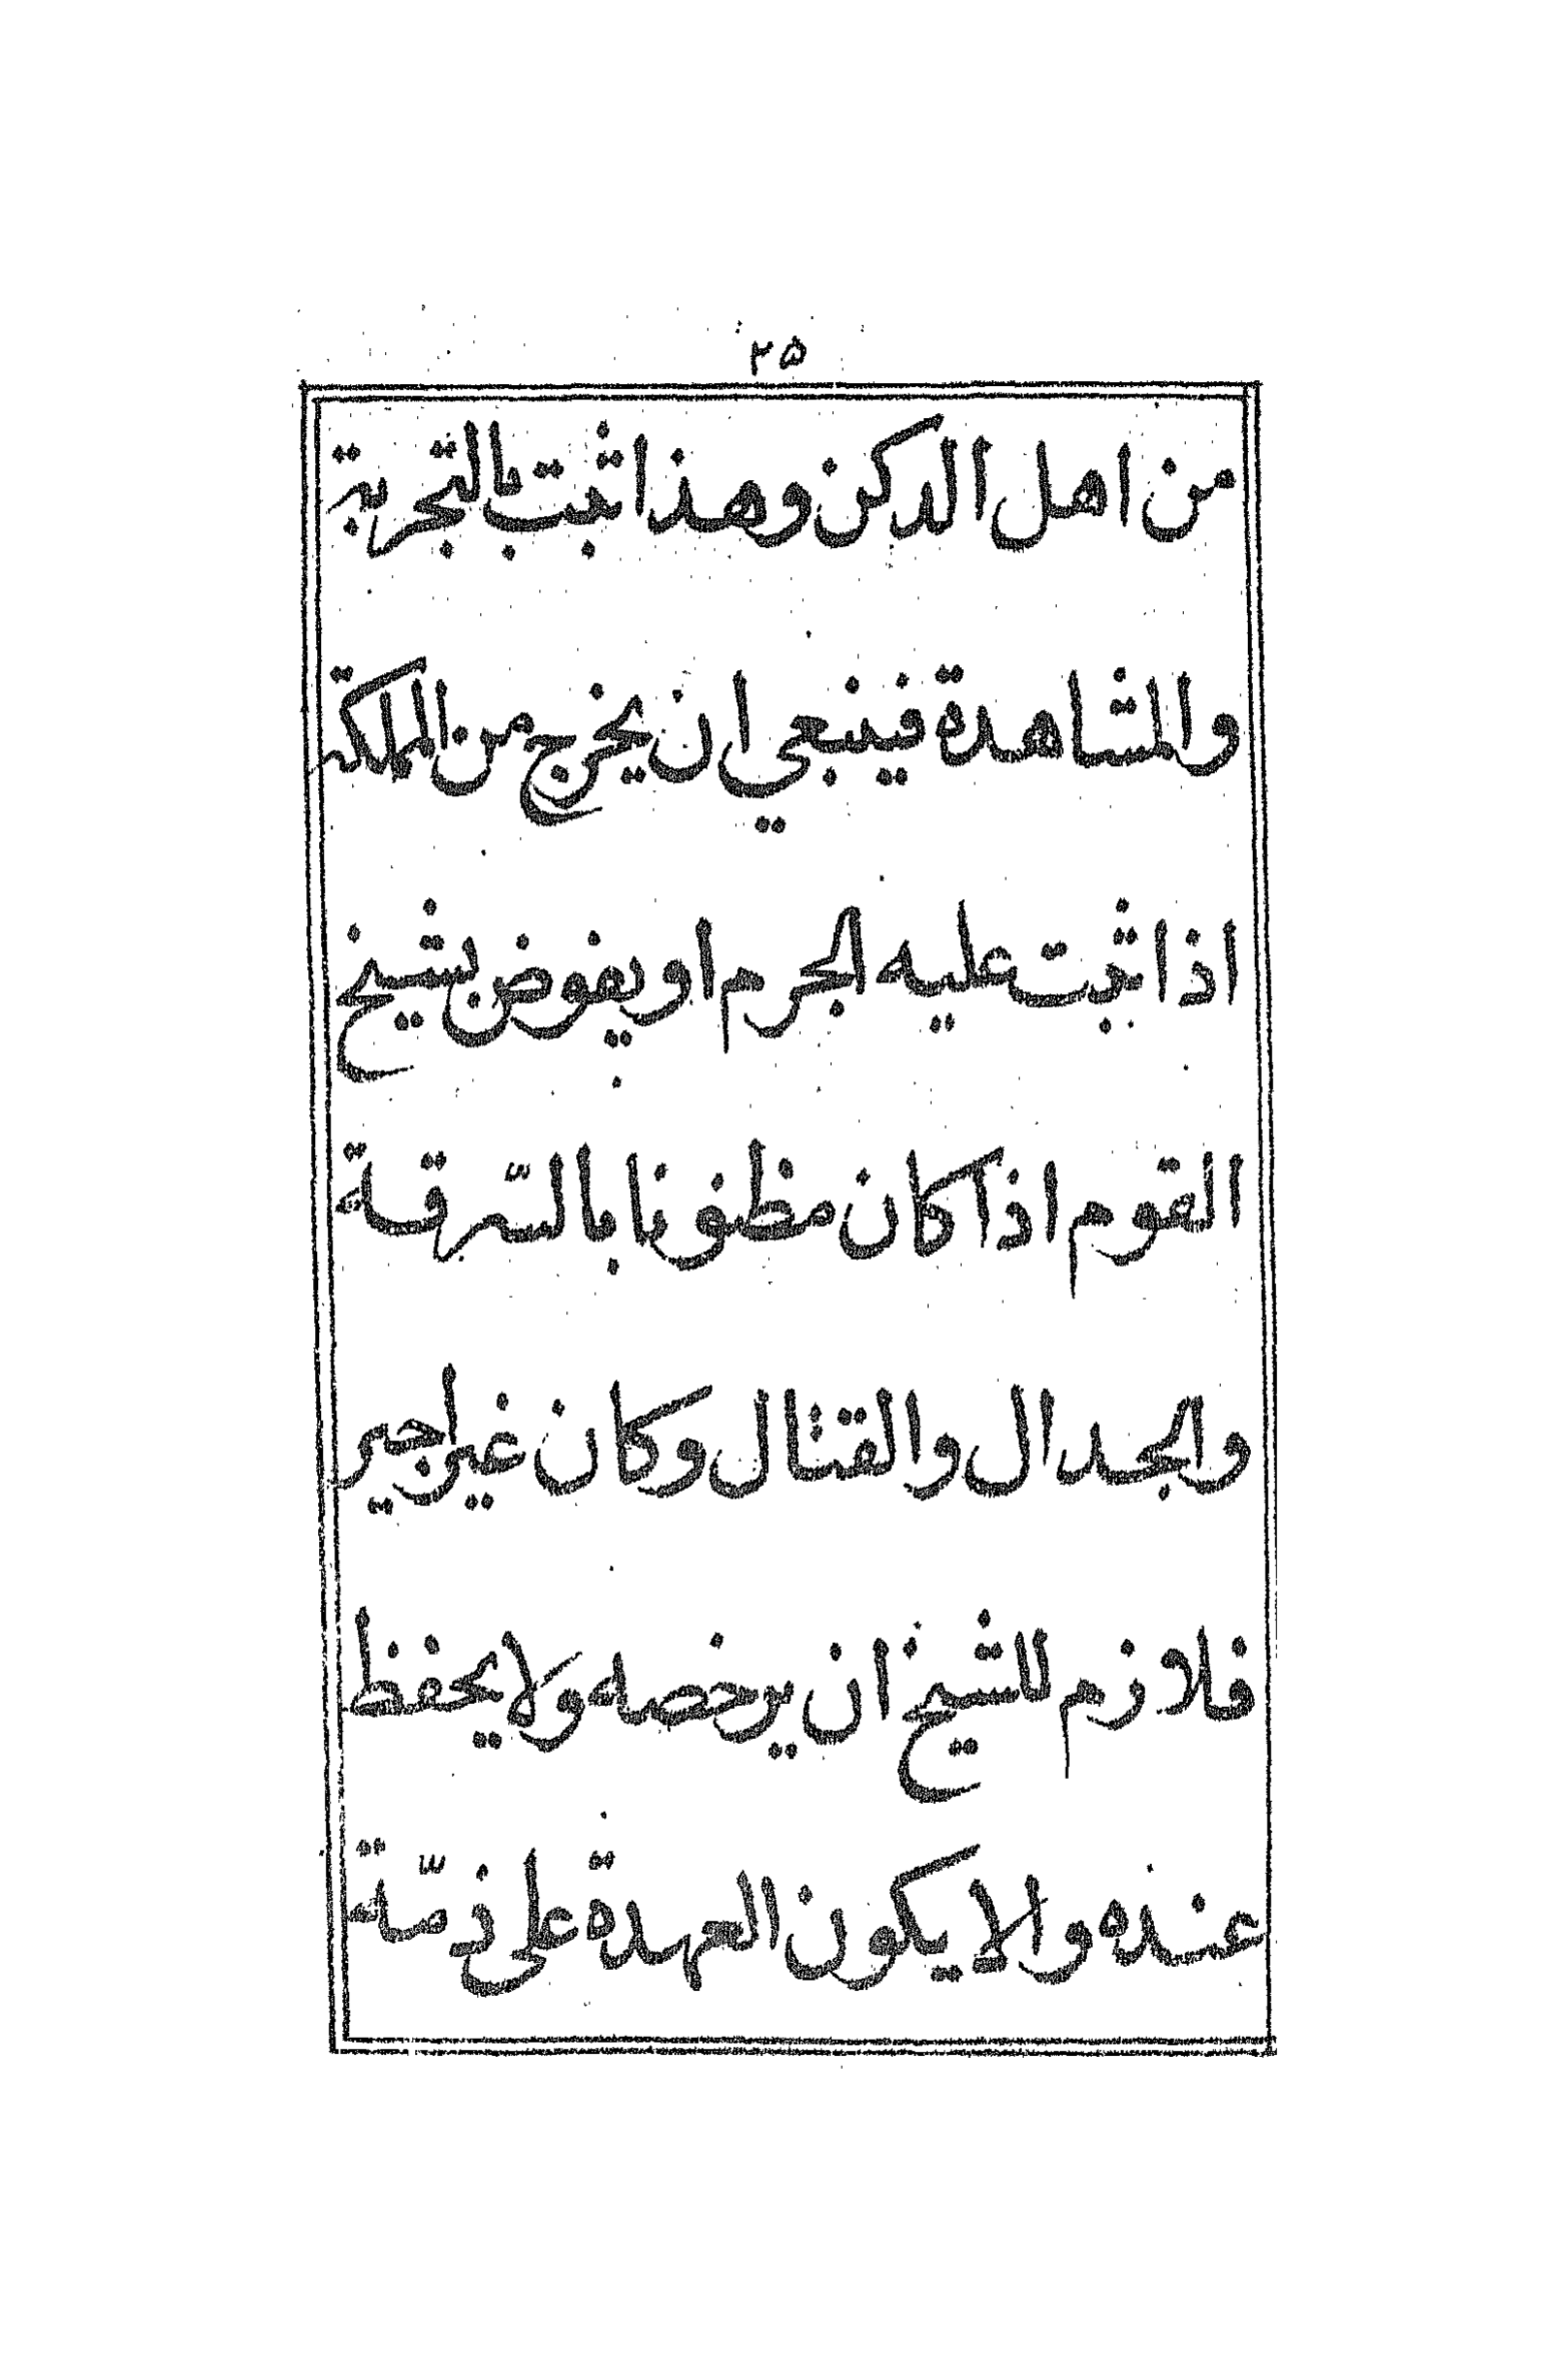 ٢٥
من اهل الدكن وهذا ثبت بالتجربة
والمشاهدة فينبغي ان يخرج من المملكة
اذا ثبت عليه الجرم او يفوض بشيخ
القوم اذا كان مظنونا بالسّرقة
والجدال والقتال وكان غير اجير
فلازم للشيخ ان يرخصه ولا يحفظ
عنده والا يكون العهدة على ذمّة